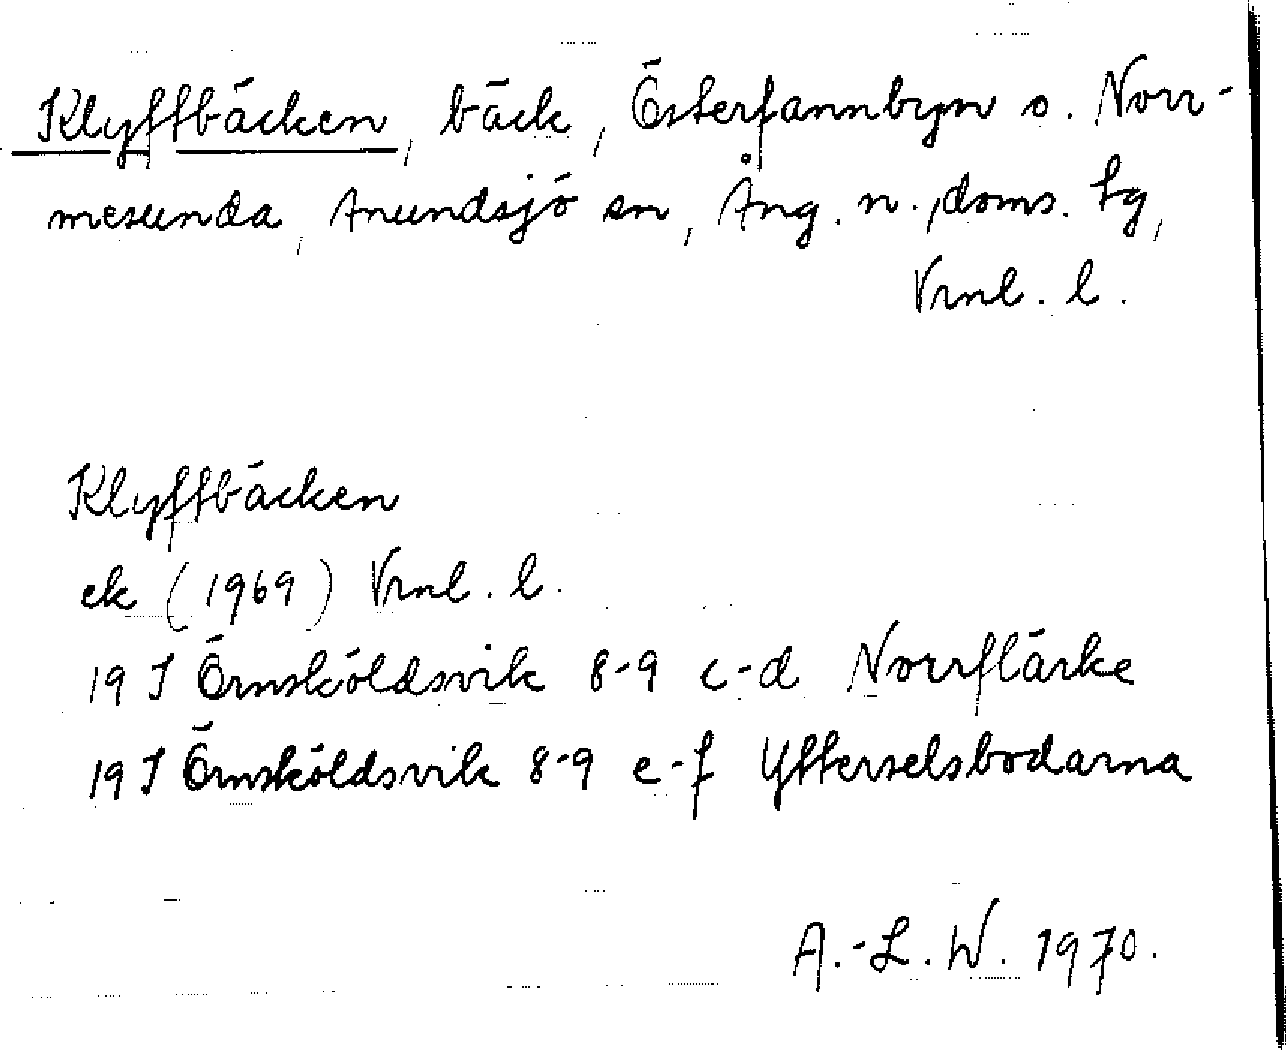 Klyffbäcken, bäck, Österfannbyn o. Norr-
mesunda, Anundsjö sn, Ång. n., doms. tg,
Vrnl. l.
Klyffbäcken
ek (1969) Vrnl. l.
19 J Örnsköldsvik 8-9 c-d Norrflärke
19 J Örnsköldsvik 8-9 e-f Ytterselsbodarna
A.-L. W. 1970.